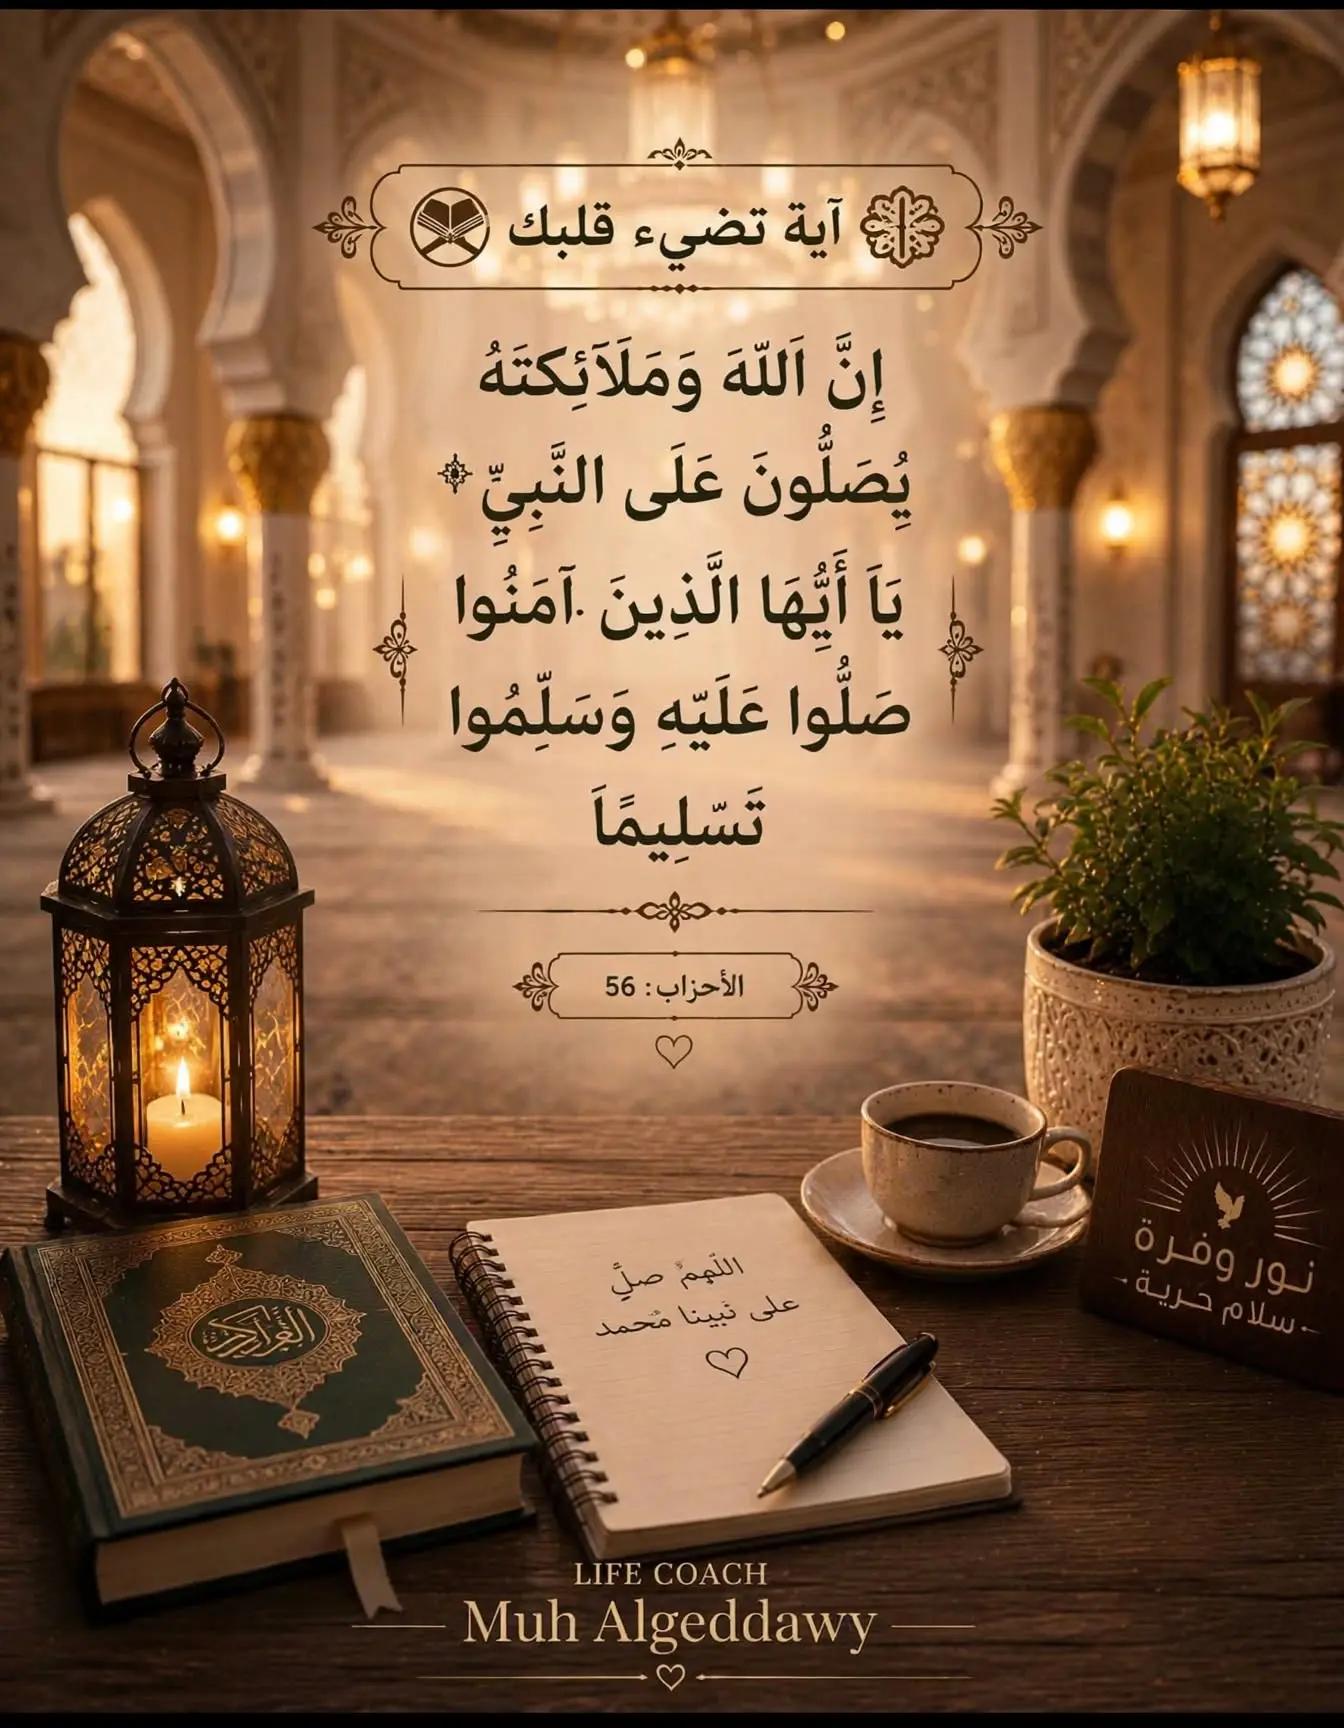 آية تضيء قلبك
إِنَّ اَللّهَ وَمَلَآئِكتَهُ
يُصَلُّونَ عَلَى النَّبِيِّ
يَاَ أَيُّهَا الَّذِينَ آمَنُوا
صَلُّوا عَلَيّهِ وَسَلِّمُوا
تَسّلِيمًاَ
الأحزاب: 56
القرآن الكريم
اللّهمّ صلِّ
على نبينا مُحمد
نور وفرة
سلام حرية
LIFE COACH
Muh Algeddawy